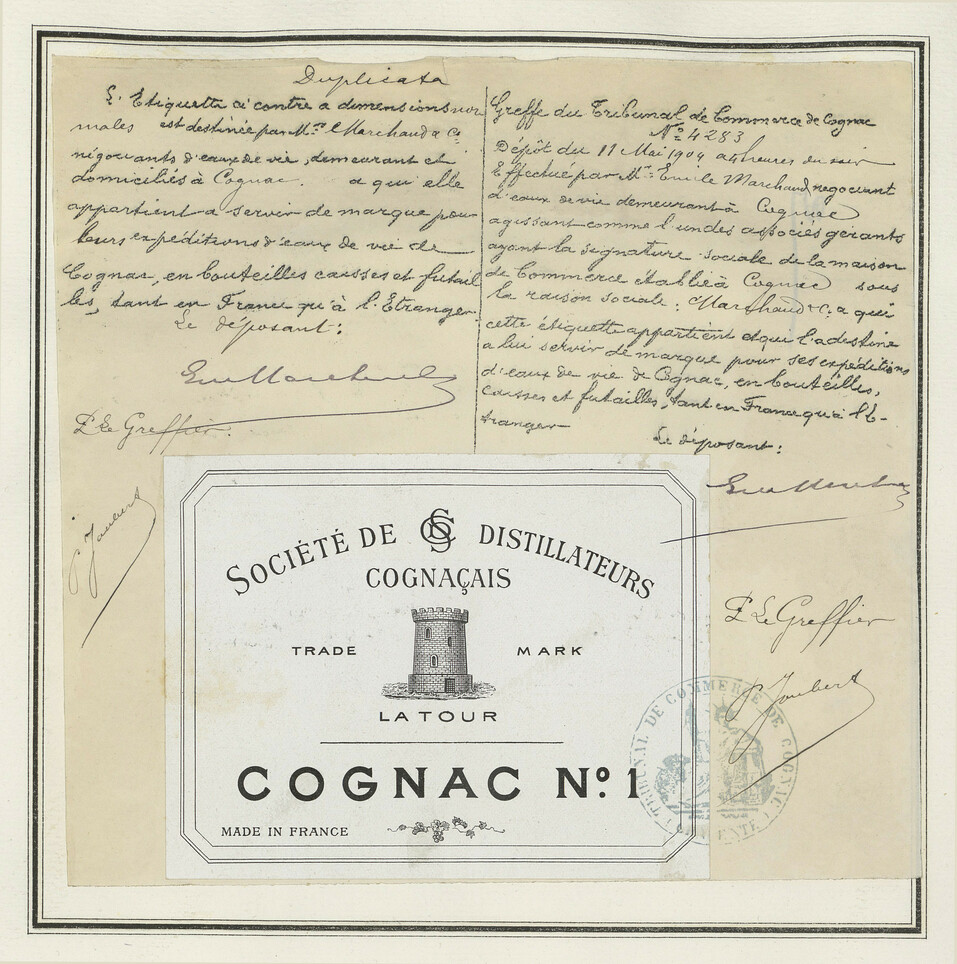 Duplicata
L'Etiquette ci contre a dimensions nor
males est destinée par Mrs Marchaud & Cie
négociants d'eaux de vie, demeurant et
domiciliés à Cognac. a qui elle
appartient a servir de marque pour
leurs expéditions d'eaux de vie de
Cognac, en bouteilles caisses et futail
les, tant en France qu'à l'Etranger.
Le déposant:
P Le Greffier.
P. Joubert
Greffe du Tribunal de Commerce de Cognac
No 4283
Dépôt du 11 Mai 1904 a 4 heures du soir
Effectué par Mr Emile Marchaud, negociant
d'eaux de vie demeurant à Cognac
agissant comme l'un des associés gérants
ayant la signature sociale de la maison
de Commerce établie à Cognac sous
la raison sociale: Marchaud & Cie a qui
cette étiquette appartient et qui l'a destine
a lui servir de marque pour ses expéditions
d'eaux de vie de Cognac, en bouteilles,
caisses et futailles, tant en France qu'à l'E-
tranger
Le déposant:
P Le Greffier
P. Joubert
SOCIÉTÉ DE DISTILLATEURS
COGNAÇAIS
TRADE MARK
LA TOUR
COGNAC No. 1
MADE IN FRANCE
TRIBUNAL DE COMMERCE DE COGNAC
(CHARENTE)